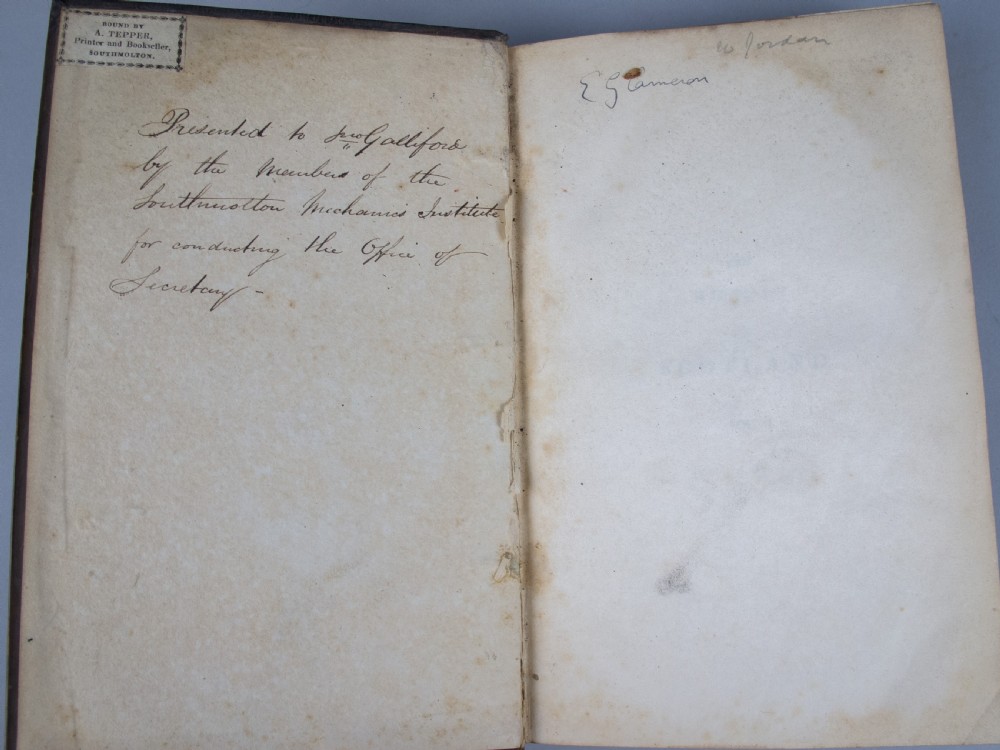 BOUND BY
A. TEPPER,
Printer and Bookseller,
SOUTHMOLTON.
Presented to Jno Galliford
by the Members of the
Southmolton Mechanics Institute
for conducting the Office of
Secretary -
Jordan
E G Cameron